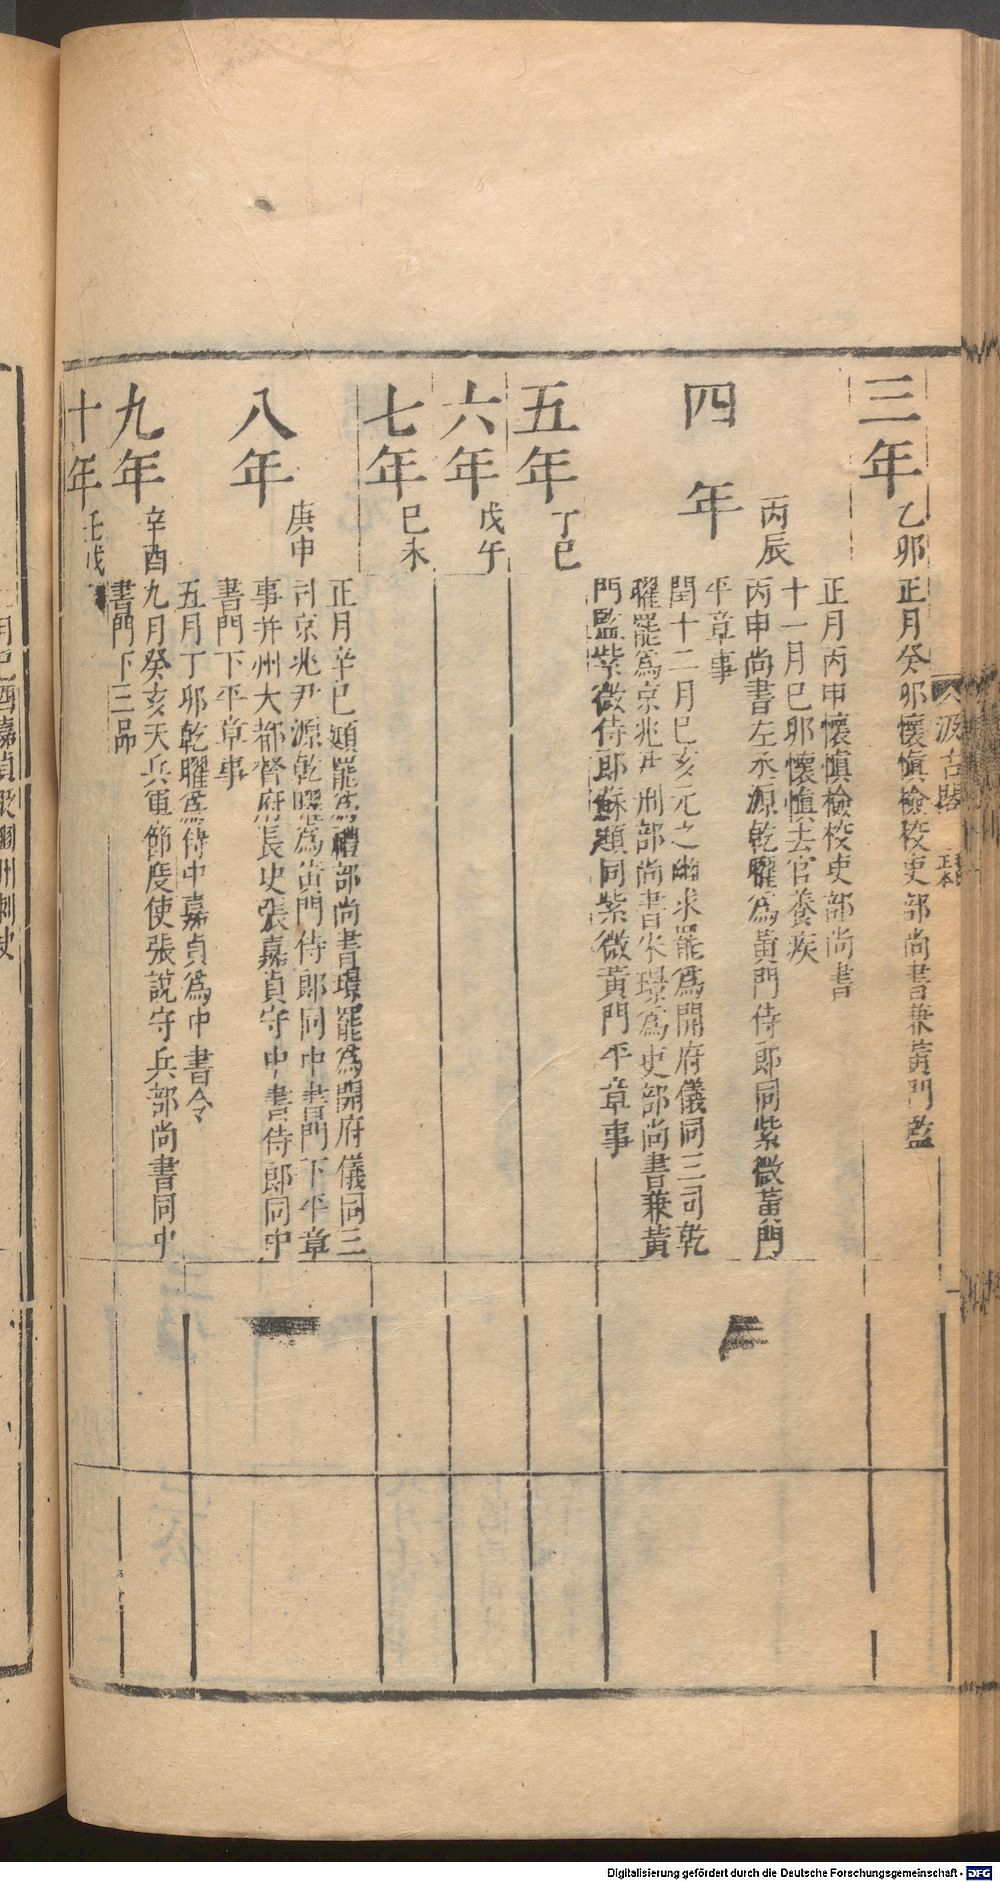 三年乙卯正月癸卯懷愼檢校吏部尚書兼黃門監
四年丙辰
正月丙申懷愼檢校吏部尚書
十一月巳卯懷愼去官養疾
丙申尚書左丞源乾曜爲黃門侍郎同紫微黃門
平章事
閏十二月巳亥元之幽求罷爲開府儀同三司乾
曜罷爲京兆尹刑部尚書宋璟爲吏部尚書兼黃
門監紫微侍郎蘇頲同紫微黃門平章事
五年丁巳
六年戊午
七年巳未
八年庚申
正月辛巳頲罷爲禮部尚書璟罷爲開府儀同三
司京兆尹源乾曜爲黃門侍郎同中書門下平章
事并州大都督府長史張嘉貞守中書侍郎同中
書門下平章事
五月丁卯乾曜爲侍中嘉貞爲中書令
九年辛酉九月癸亥天兵軍節度使張說守兵部尚書同中
書門下三品
十年壬戌
汲古閣
毛氏
正本
Digitalisierung gefördert durch die Deutsche Forschungsgemeinschaft - DFG